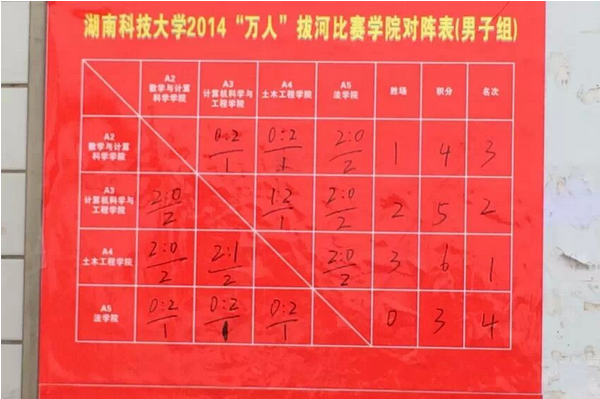 湖南科技大学2014“万人”拔河比赛学院对阵表(男子组)
A2 数学与计算科学学院 A3 计算机科学与工程学院 A4 土木工程学院 A5 法学院 胜场 积分 名次
A2 数学与计算科学学院 0:2/1 0:2/1 2:0/2 1 4 3
A3 计算机科学与工程学院 2:0/2 1:2/1 2:0/2 2 5 2
A4 土木工程学院 2:0/2 2:1/2 2:0/2 3 6 1
A5 法学院 0:2/1 0:2/1 0:2/1 0 3 4